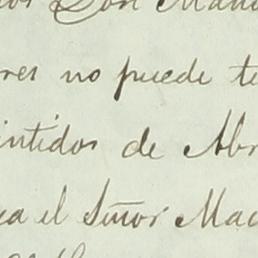 os Don Manu
res no puede te
intidos de Abr
ea el Señor Mac